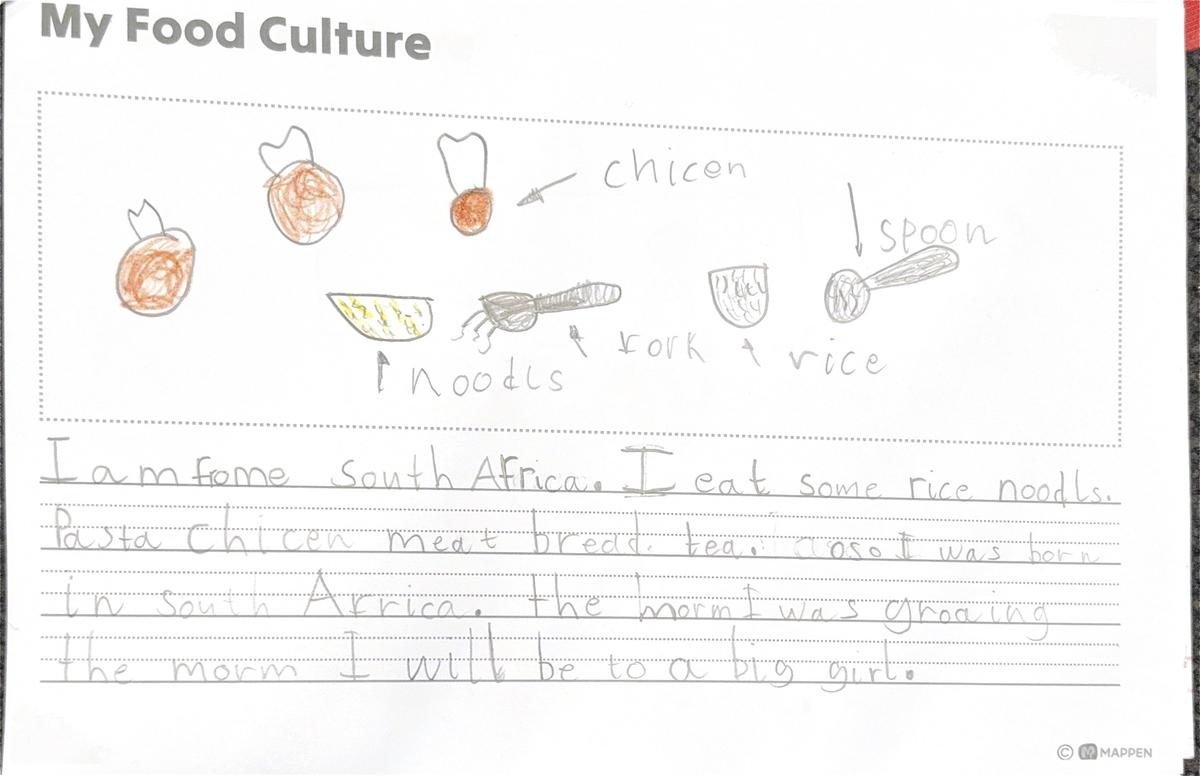 My Food Culture
chicen
spoon
fork
rice
noodls
I am frome south Africa. I eat some rice noodls.
Pasta chicen meat bredd. tea. aoso I was born
in south Africa. the morm I was groaing
the morm I will be to a big girl.
© MAPPEN